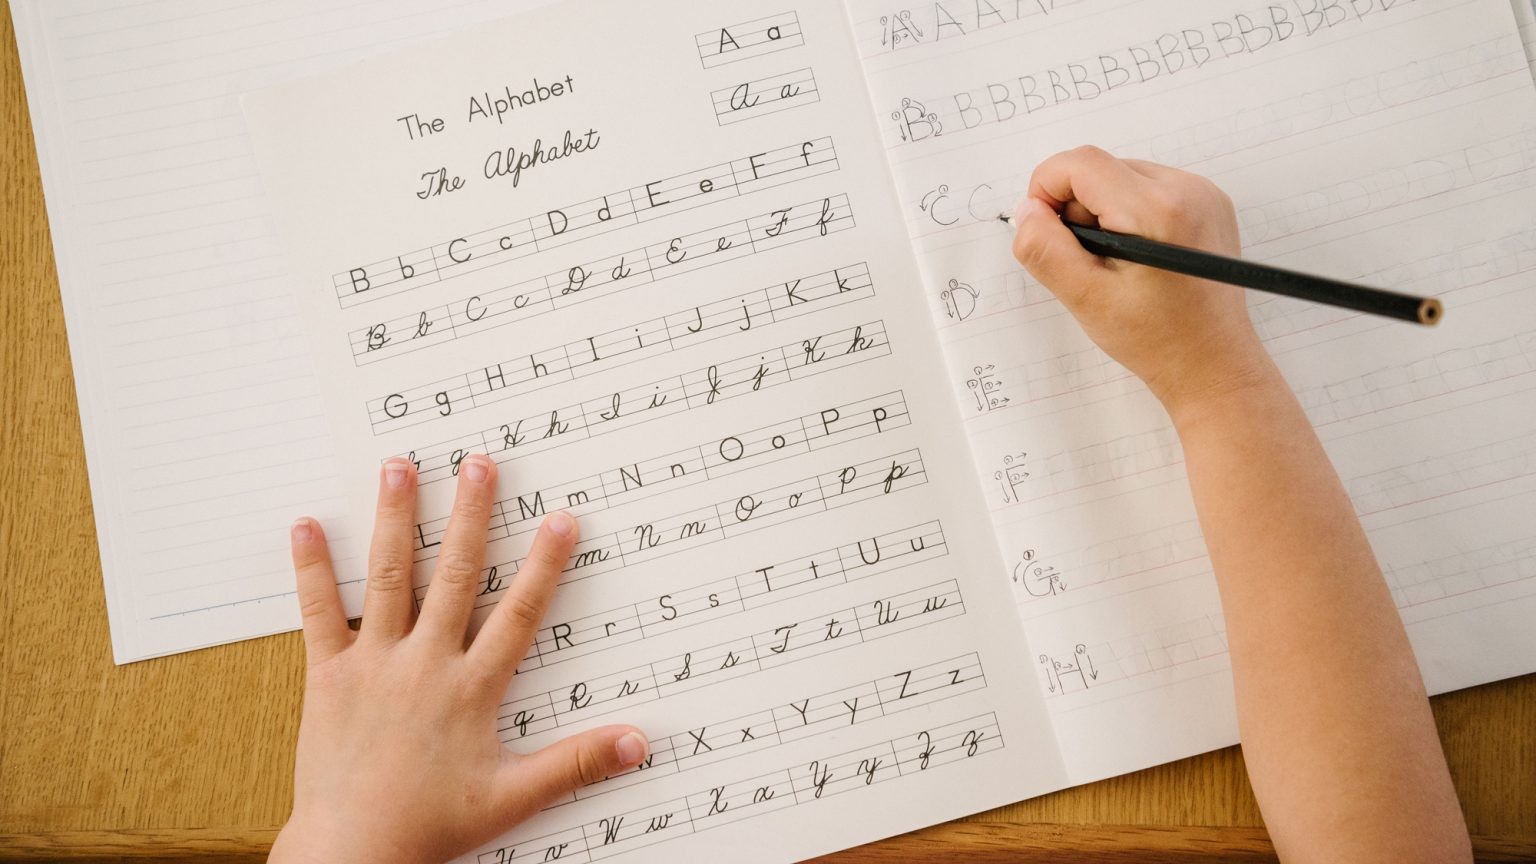 A a
A a
The Alphabet
The Alphabet
B b C c D d E e F f
B b C c D d E e F f
G g H h I i J j K k
g H h I i J j K k
L M m N n O o P p
l m N n O o P p
R r S s T t U u
q R r S s T t U u
w X x Y y Z z
v W w X x Y y Z z
A A A A
B B B B B B B B B B B B B B B B
C C
D
E
F
G
H